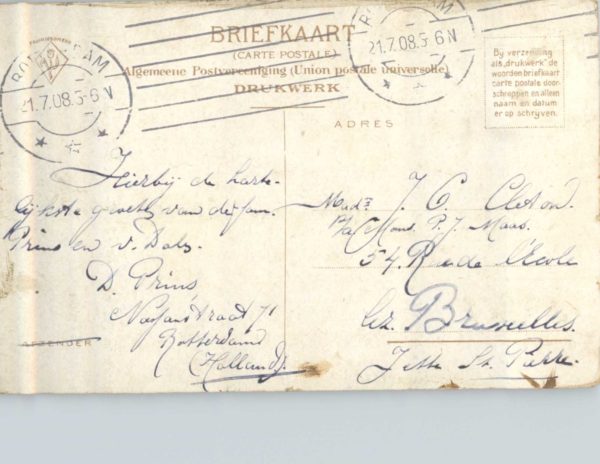 BRIEFKAART
(CARTE POSTALE)
Algemeene Postvereeniging (Union postale universelle)
DRUKWERK
ROTTERDAM
21.7.08.5-6N
21.7.08.5-6N
Bij verzending
als "drukwerk" de
woorden briefkaart
carte postale door-
schrappen en alleen
naam en datum
er op schrijven.
ADRES
Hierbij de harte-
lijkste groeten van de fam.
Prins en v. Dalz.
D. Prins
71
Rotterdam
(Holland).
AFZENDER
J. C. Cleton.
p/a Mons. P. J. Maas.
54. Rue de l'École
Bruxelles.
Jette St. Pierre.